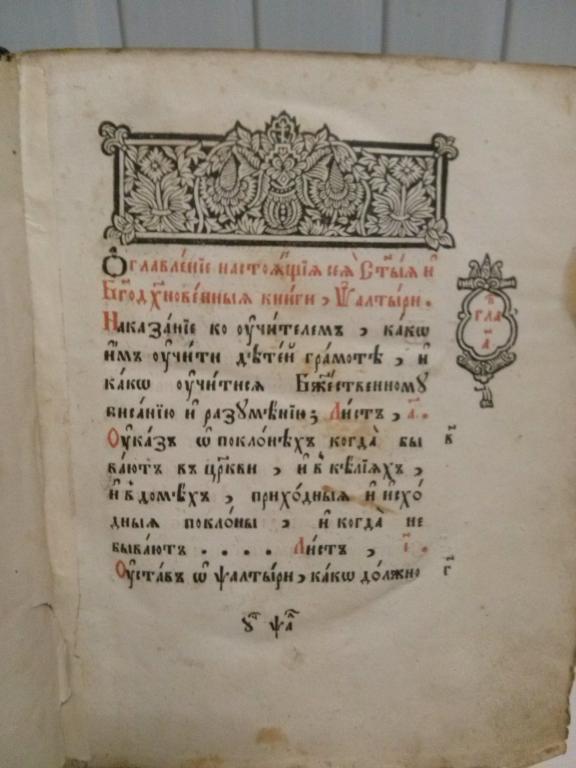 Ѻглавле́нїе настоѧ́щїѧ сеѧ̀ С҃ты́ѧ и҆
Бг҃одꙋхнове́нныѧ кни́ги, Ѱалты́ри.
глава̀
а҃
Наказа́нїе ко ᲂу҆чи́телемъ, ка́кѡ
и҆́мъ ᲂу҆чи́ти дѣте́й гра́мотѣ, и҆
ка́кѡ ᲂу҆чи́тисѧ Бж҃е́ственномꙋ
писа́нїю и҆ разꙋмѣ́нїю; Ли́стъ, а҃.
Оу҆ка́зъ ѡ҆ покло́нѣхъ когда̀ бы
ва́ютъ въ цр҃кви, и҆ в҆ ке́лїѧхъ,
в҃
и҆ в҆ домѣ́хъ, прихо́дныѧ и҆ и҆схо́
дныѧ покло́ны, и҆ когда̀ не
быва́ютъ . . . . Ли́стъ, і҃.
Оу҆ста́въ ѡ҆ ѱалты́ри, ка́кѡ до́лжно
г҃